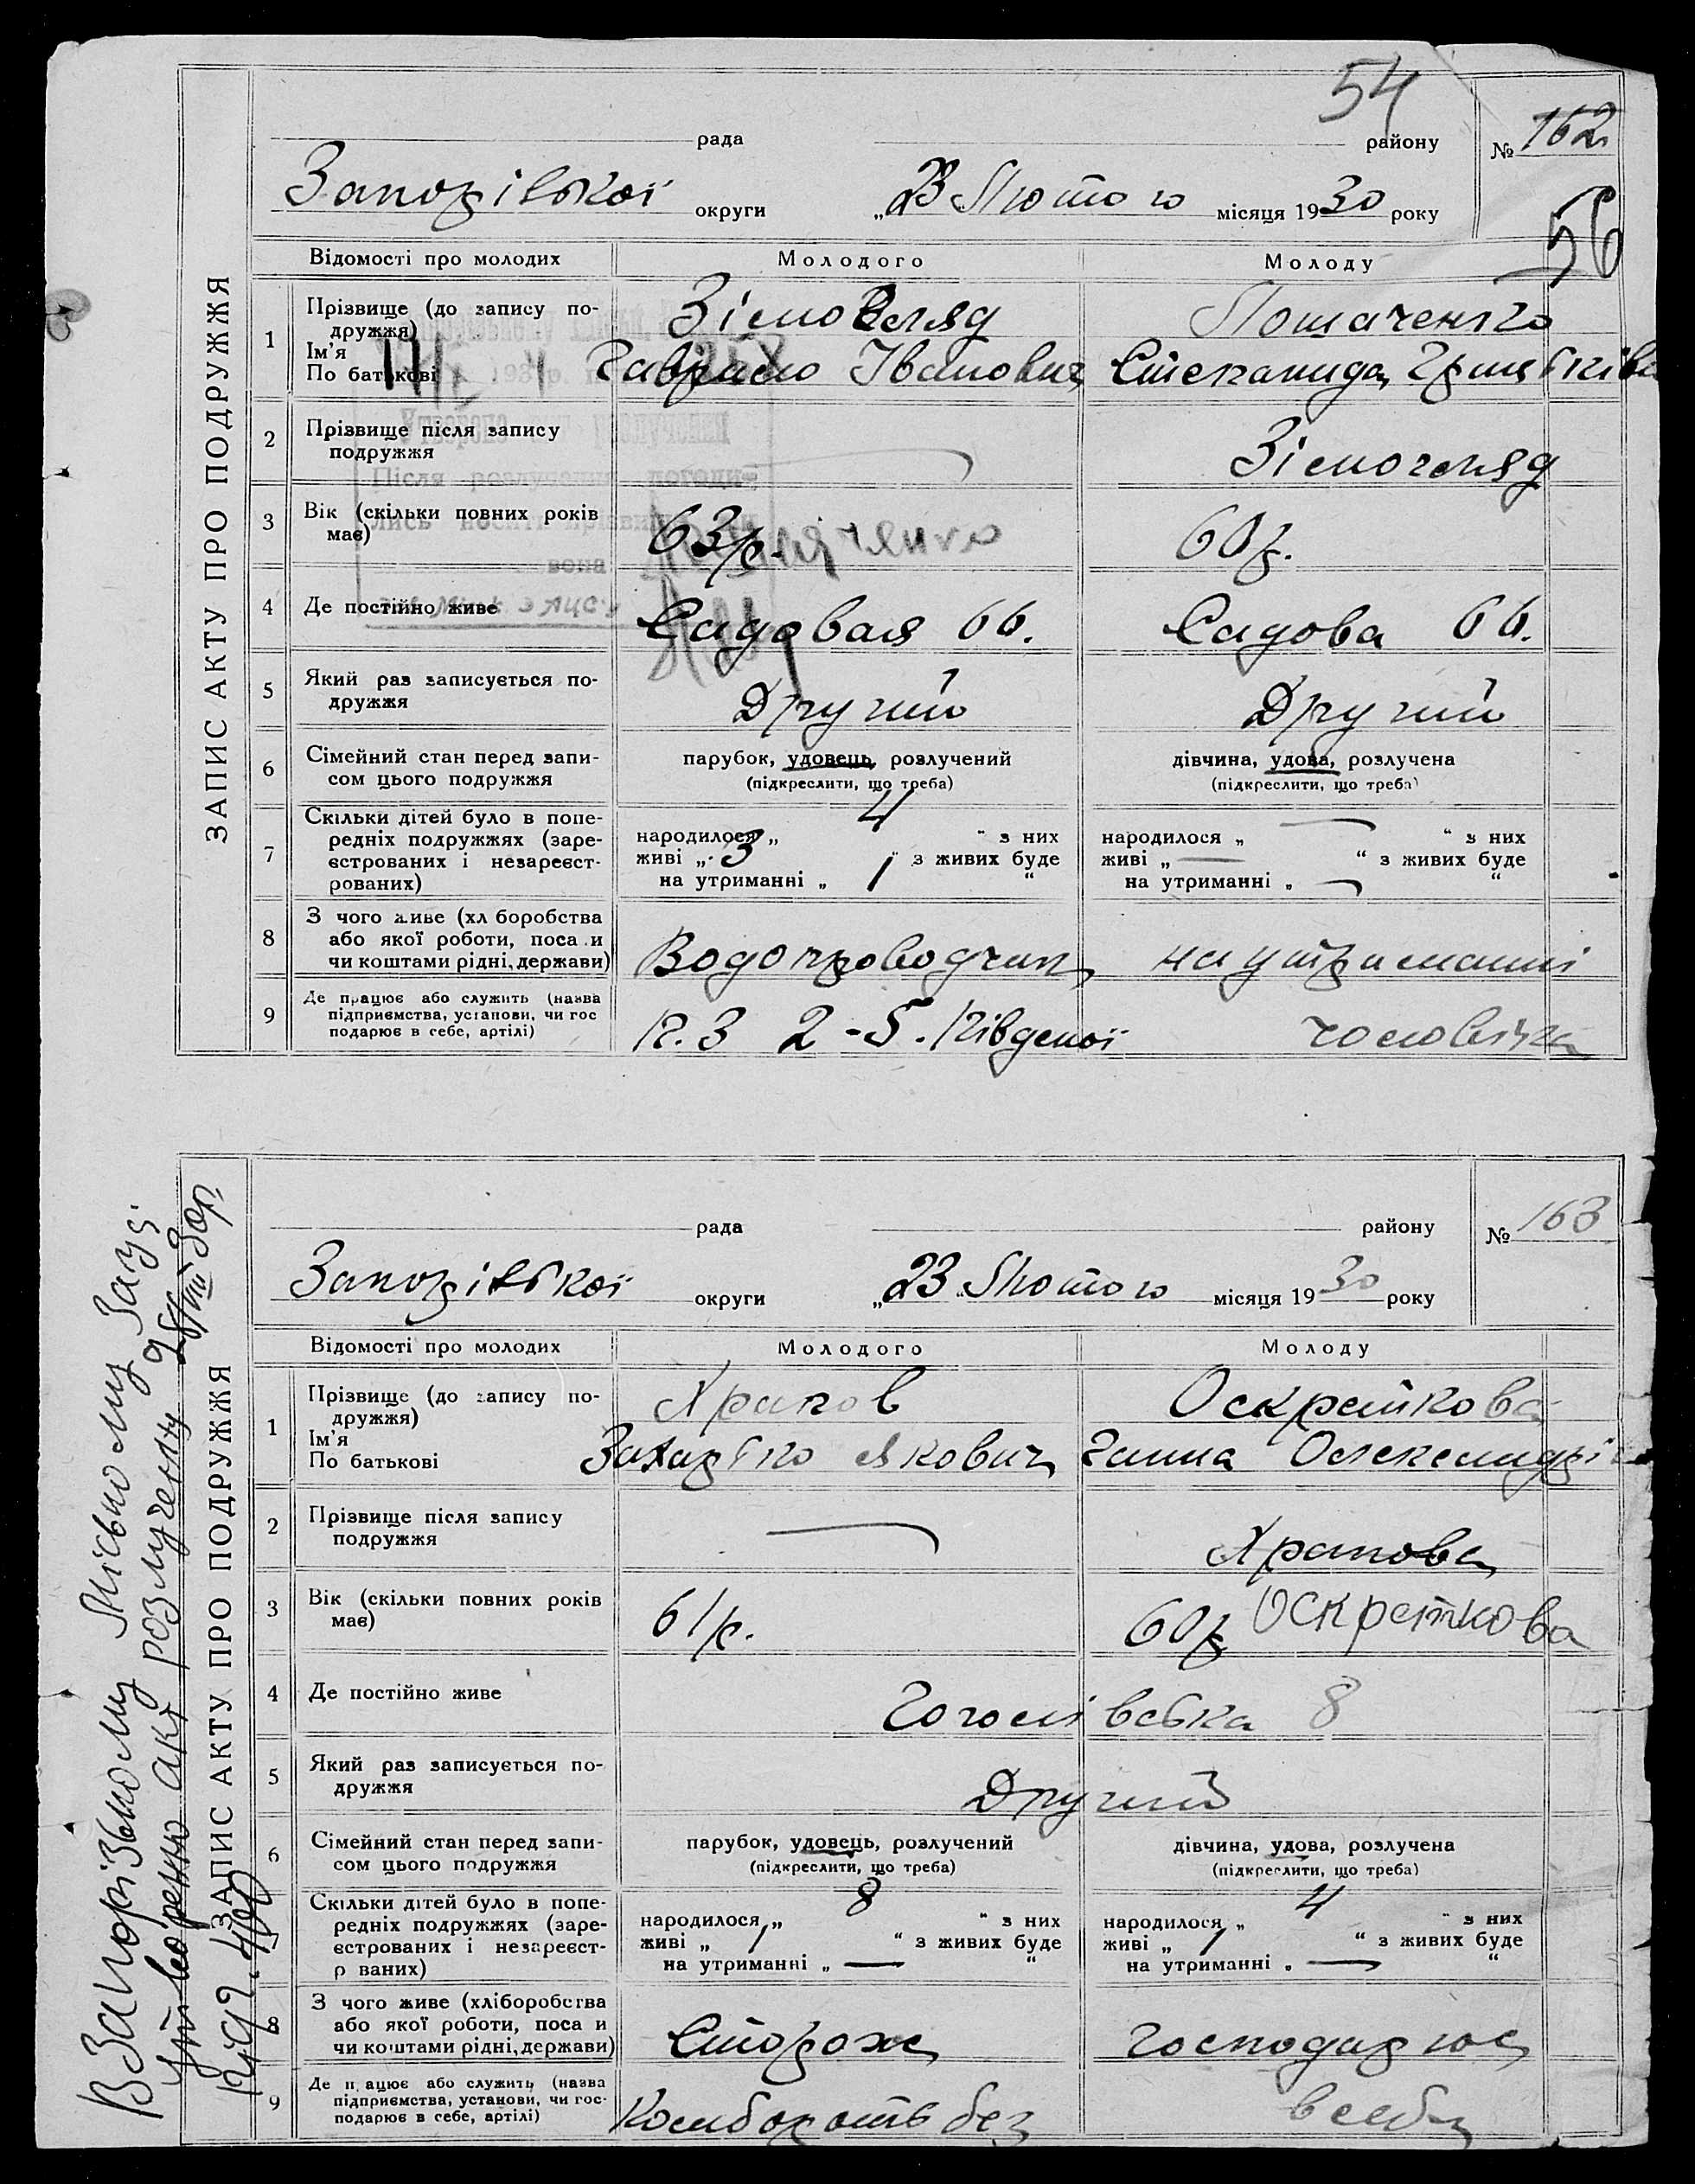 54
рада району № 162
Запорізької округи „23 Лютого місяця 1930 року
56
ЗАПИС АКТУ ПРО ПОДРУЖЖЯ
Відомості про молодих Молодого Молоду
1 Прізвище (до запису по-
дружжя) Зімогляд
Ім'я
По батькові Гаврило Іванович Степанида
2 Прізвище після запису
подружжя Зімогляд
Утворено акт розлучення
Після розлучення погодились
носити прізвища
вона
3 Вік (скільки повних років
має) 63р. 60р.
4 Де постійно живе Садовая 66. Садова 66.
5 Який раз записується по-
дружжя Другий Другий
6 Сімейний стан перед запи-
сом цього подружжя парубок, удовець, розлучений дівчина, удова, розлучена
(підкреслити, що треба) (підкреслити, що треба)
7 Скільки дітей було в попе-
редніх подружжях (заре-
єстрованих і незареєст-
рованих) народилося „ 4 “ з них народилося „ — “ з них
живі „ 3 “ з живих буде живі „ — “ з живих буде
на утриманні „ 1 “ на утриманні „ — “
8 З чого живе (хл боробства
або якої роботи, поса и
чи коштами рідні, держави) Водопроводчик на утриманні
9 Де працює або служить (назва
підприємства, установи, чи гос
подарює в себе, артілі) 2 - 5. Південої чоловіка
рада району № 163
Запорізької округи „23 Лютого місяця 1930 року
ЗАПИС АКТУ ПРО ПОДРУЖЖЯ
Відомості про молодих Молодого Молоду
1 Прізвище (до запису по-
дружжя) Храпов Оскреткова
Ім'я
По батькові Захарко Якович Ганна Олександрів
2 Прізвище після запису
подружжя — Храпова
3 Вік (скільки повних років
має) 61р. 60р Оскреткова
4 Де постійно живе Гоголівська 8
5 Який раз записується по-
дружжя Другий
6 Сімейний стан перед запи-
сом цього подружжя парубок, удовець, розлучений дівчина, удова, розлучена
(підкреслити, що треба) (підкреслити, що треба)
Скільки дітей було в попе-
редніх подружжях (заре-
єстрованих і незареєст-
р ваних) народилося „ 8 “ з них народилося „ 4 “ з них
живі „ 1 “ з живих буде живі „ 1 “ з живих буде
на утриманні „ — “ на утриманні „ — “
8 З чого живе (хліборобства
або якої роботи, поса и
чи коштами рідні, держави) Сторож господарює
9 Де п ацює або служить (назва
підприємства, установи, чи гос-
подарює в себе, артілі) Комборотьбез в себе
В Запорізькому Міському Загс
утворено акт розлучення